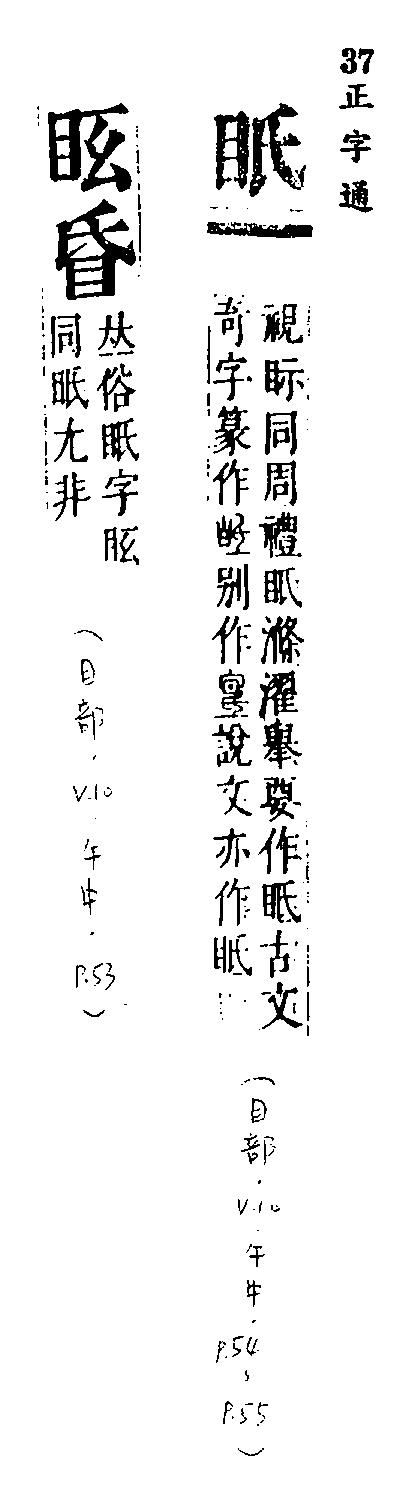 37正字通
眂
視眎同周禮眂滌濯舉要作眡古文
奇字篆作别作說文亦作眂
(目部.V.10.午中.P.54、P.55)
丛俗眂字
同眂尤非
(目部.V.10.午中.P.53)